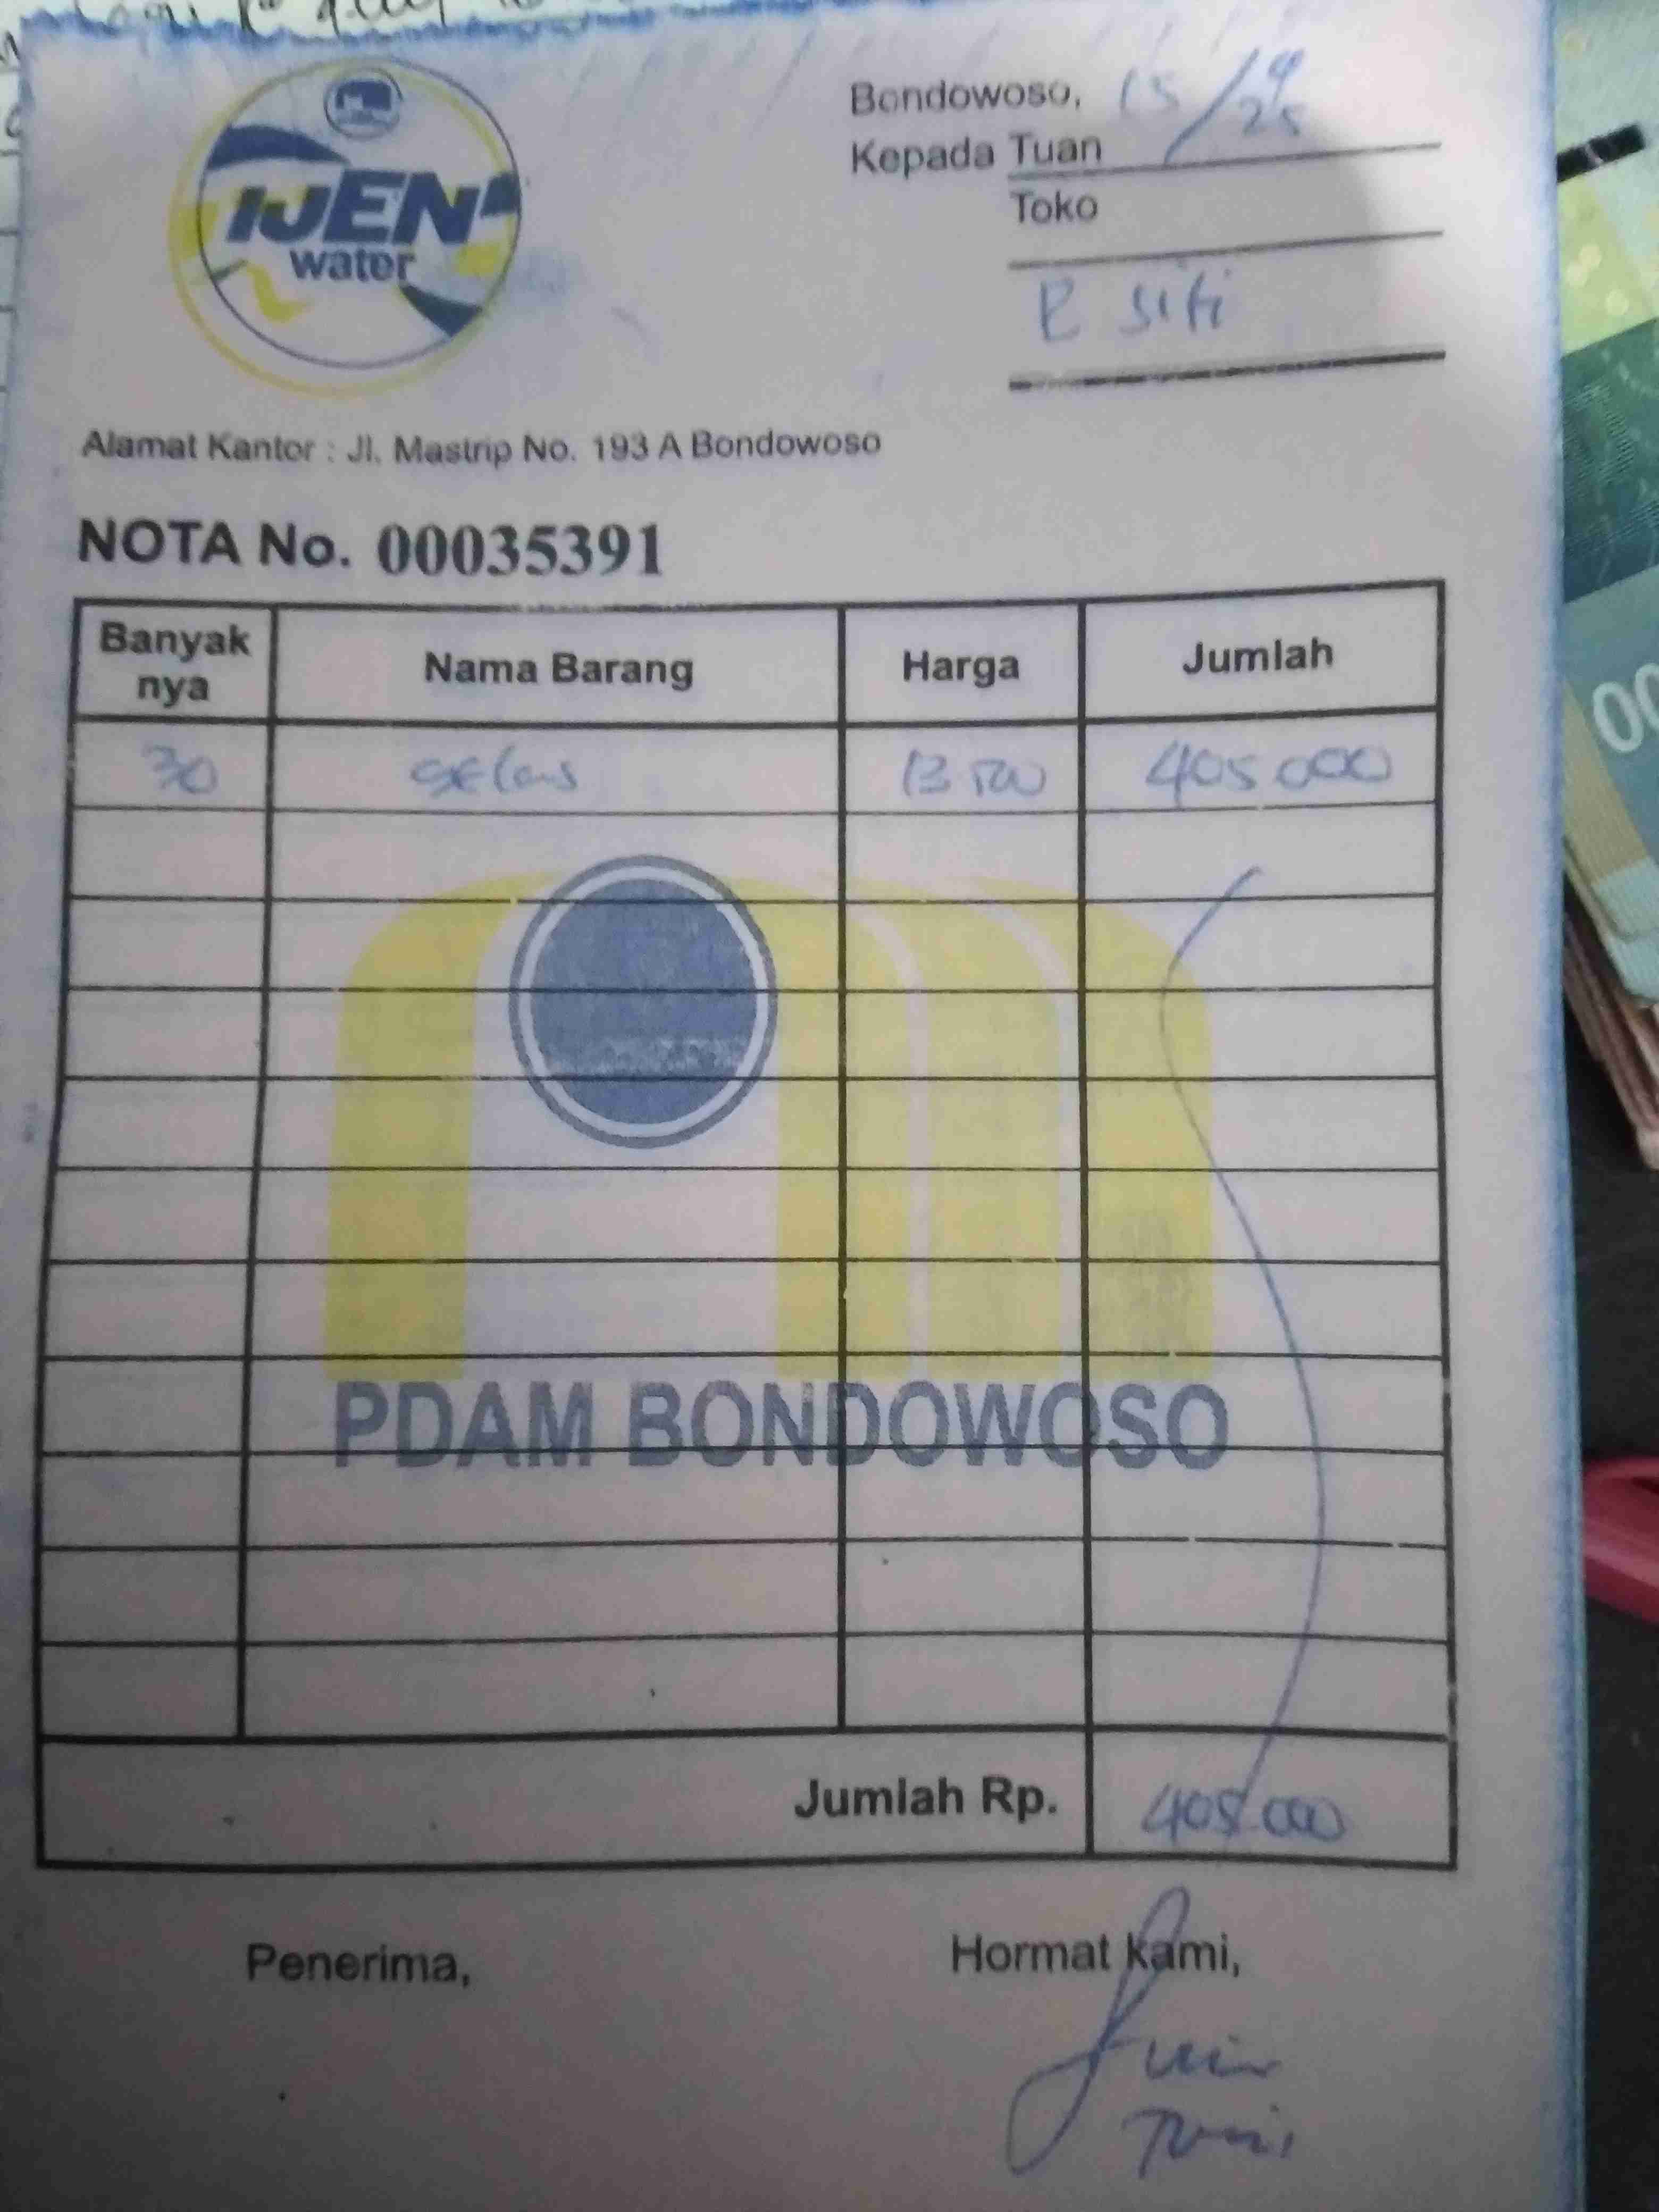 IJEN
water
Bondowoso, 15/4 25
Kepada Tuan
Toko
B siti
Alamat Kantor : Jl. Mastrip No. 193 A Bondowoso
NOTA No. 00035391
Banyak nya Nama Barang Harga Jumlah
30 gelas 13 500 405 000
PDAM BONDOWOSO
Jumlah Rp. 405.000
Penerima, Hormat kami,
00